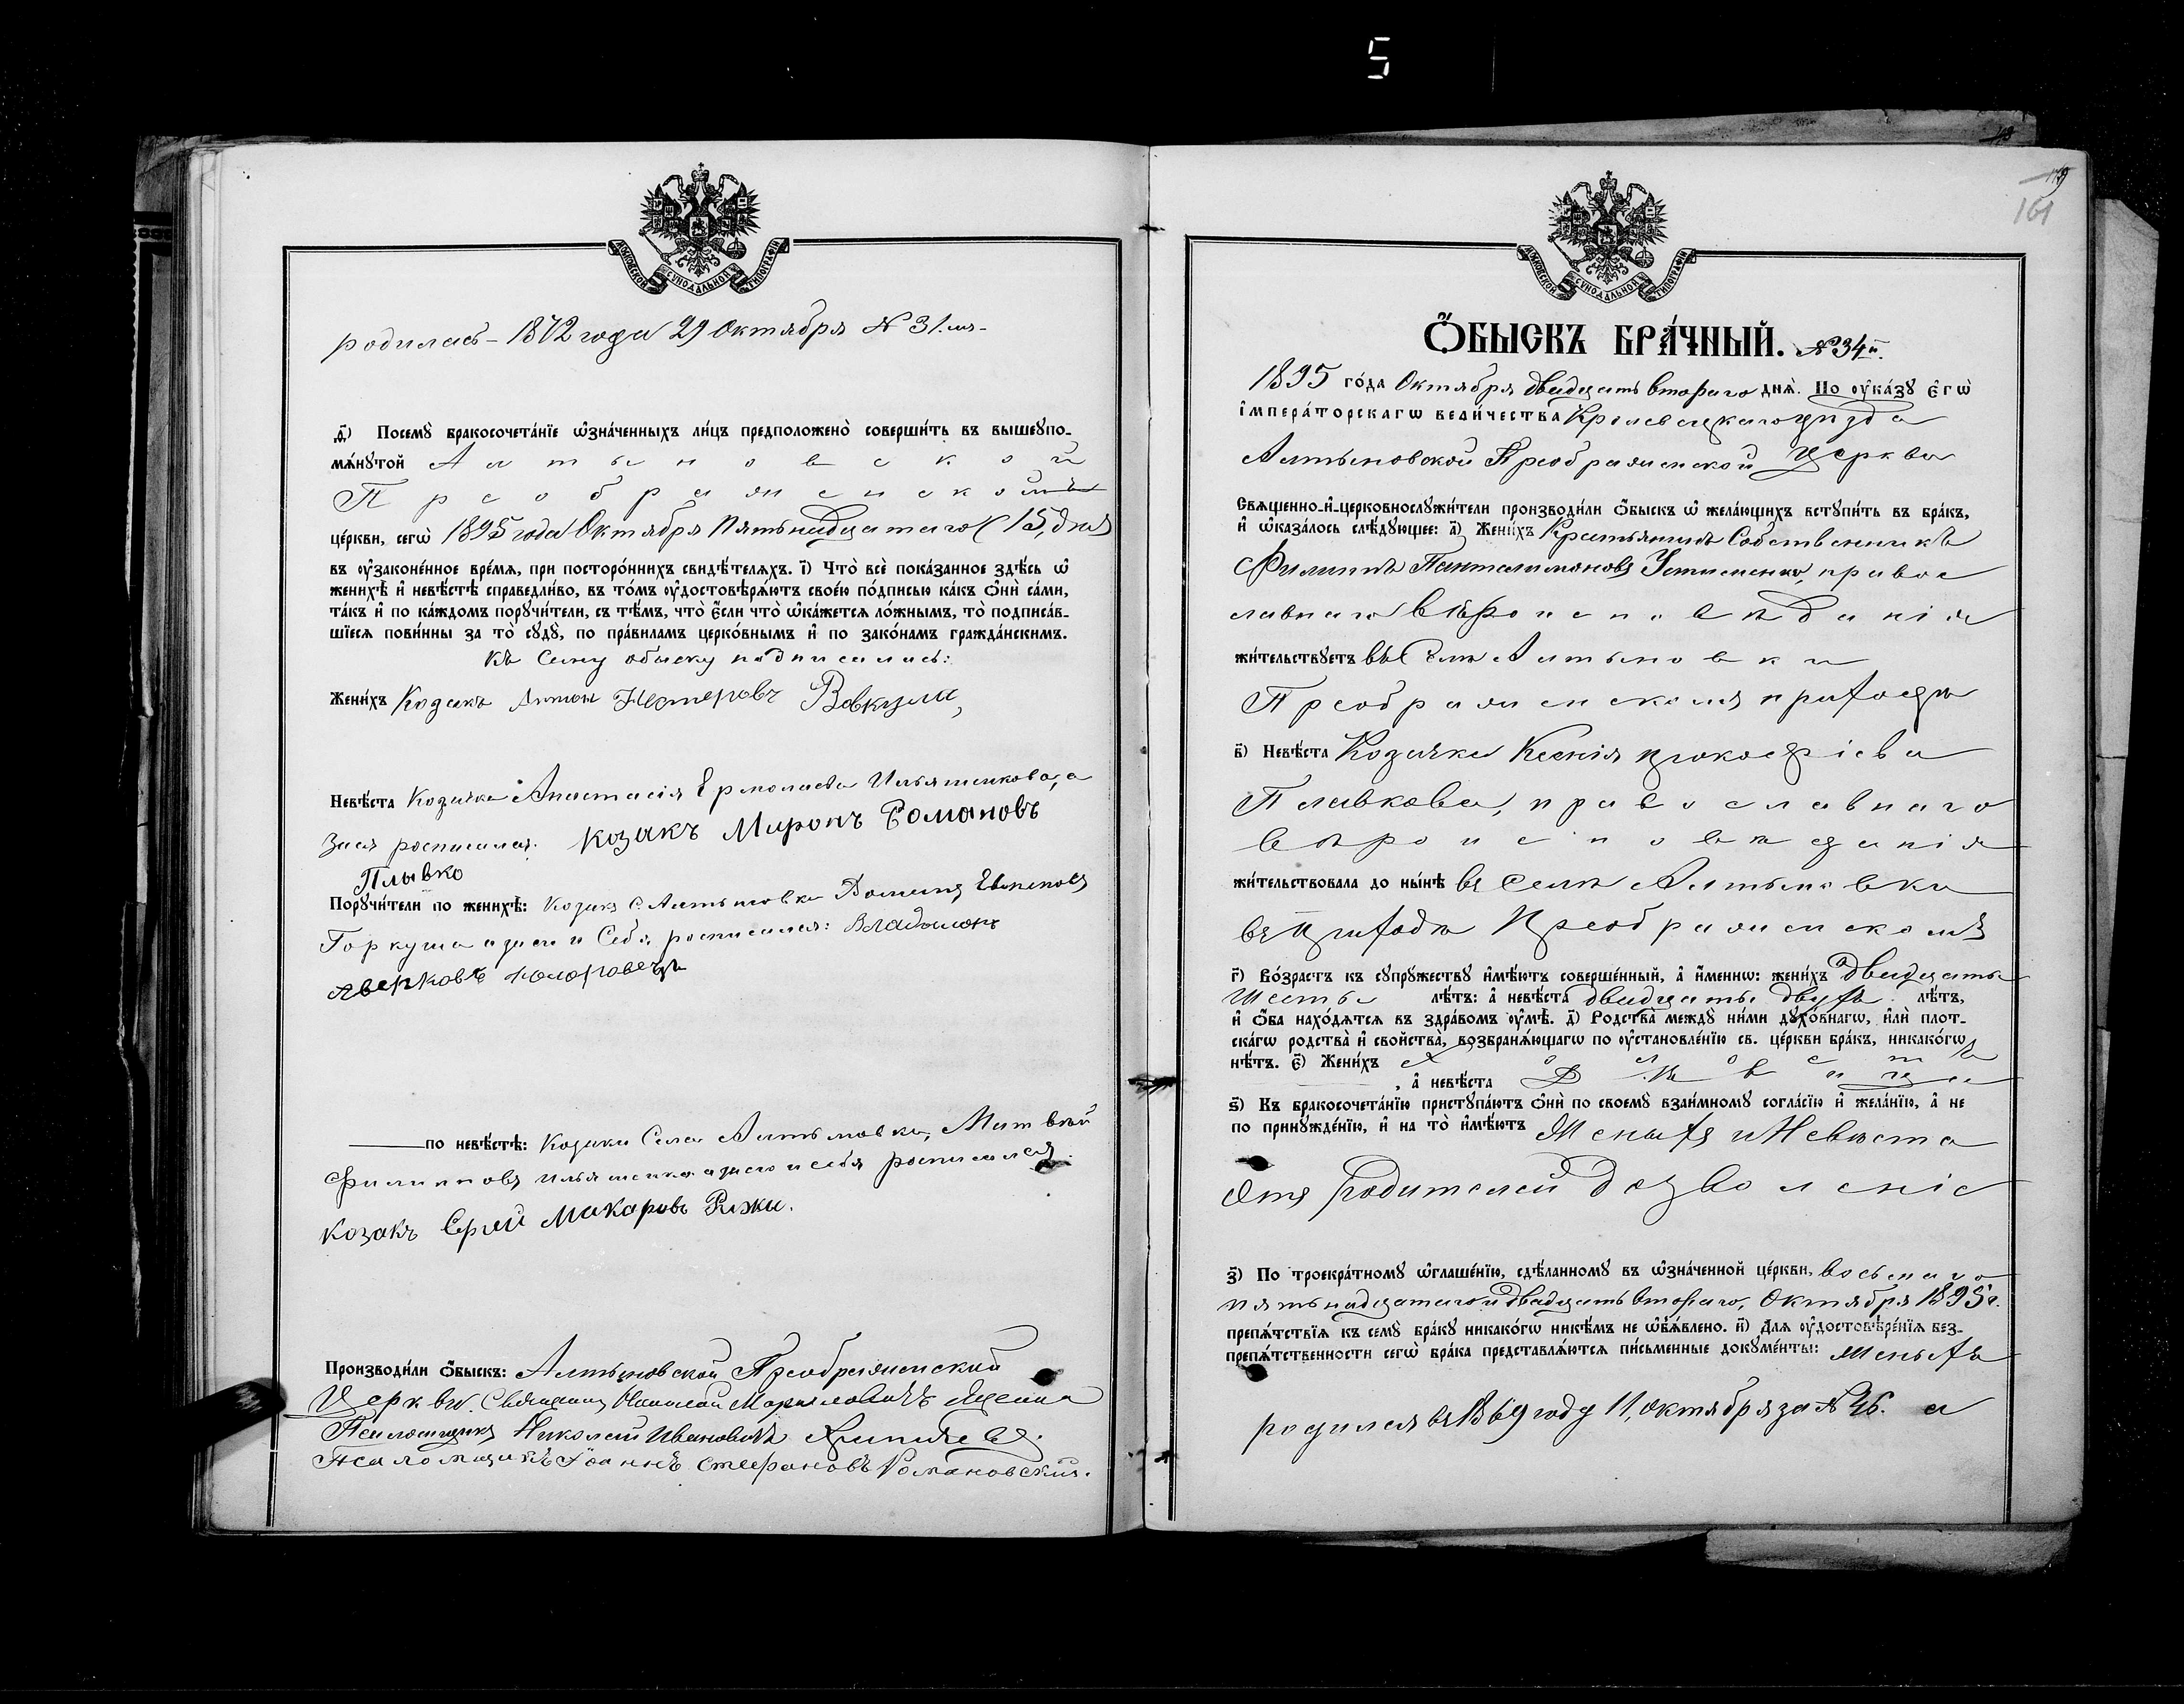 5
МОСКОВСКОЙ СѴНОДАЛЬНОЙ ТИПОГРАФІИ
родилась – 1872 года 29 Октября № 31. ж –
д҃) Посемꙋ̀ бракосочета́нїе ѡ҆зна́ченныхъ ли́цъ предположено̀ соверши́ть въ вышеꙋпо-
мѧ́нꙋтой Алтыновской
Преображенской
це́ркви, сегѡ̀ 1895 года Октября Пятьнадцатаго (15, дня
въ ᲂу҆законе́нное вре́мѧ, при посторо́ннихъ свидѣ́телѧхъ. і҃) Что̀ всѐ пока́занное здѣ́сь ѡ҆
женихѣ̀ и҆ невѣ́стѣ справедли́во, въ то́мъ ᲂу҆достовѣрѧ́ютъ свое́ю по́дписью ка́къ ѻ҆нѝ са́ми,
та́къ и҆ по ка́ждомъ порꙋчи́тели, съ тѣ́мъ, что̀ є҆́сли что̀ ѡ҆ка́жетсѧ ло́жнымъ, то̀ подписа́в-
шїесѧ пови́нны за то̀ сꙋдꙋ̀, по пра́виламъ церко́внымъ и҆ по зако́намъ гражда́нскимъ.
къ сему обыску подписались:
Жени́хъ Козакъ Антон Нестеровъ Вовкузы,
Невѣ́ста Козачка Анастасія Ермолаева Ильяшенкова, а
за ея росписался. козакъ Миронъ Романовъ
Плывко
Порꙋчи́тели по женихѣ̀: Козакъ С Алтыновки
Горкуша а за его и Себя росписался:
по невѣ́стѣ: Козаки Села Алтыновки, Матвѣй
Филиповъ Ильяшенко а за его и себя росписался
козакъ Сргѣй Макаровъ Рижки.
Производи́ли ѻ҆́быскъ: Алтыновской Преображенской
Церкви. Священикъ Николай
Псаломщикъ Николай Ивановичъ
Псаломщикъ Іоаннъ Стефановъ Романовскій.
161
МОСКОВСКОЙ СѴНОДАЛЬНОЙ ТИПОГРАФІИ
Ѻ҆́БЫСКЪ БРА́ЧНЫЙ. № 34й.
1895 го́да Октября двадцать втораго днѧ̀. По ᲂу҆ка́зꙋ є҆гѡ̀
і҆мпера́торскагѡ вели́чества Кролевецкаго уѣзда
Алтыновской Преображенской Церкви
Свѧщенно-и҆-церковнослꙋжи́тели производи́ли ѻ҆́быскъ ѡ҆ жела́ющихъ встꙋпи́ть въ бра́къ,
и҆ ѡ҆каза́лось слѣ́дꙋющее: а҃) Жени́хъ Крестьянинъ Собственникъ
Филиппъ Панталимоновъ Устименко, право
славнаго вѣроисповѣданія
жи́тельствꙋетъ въ Селѣ Алтыновки
Преображенскомъ приходѣ
в҃) Невѣ́ста Козачка Ксенія прокофіева
Плывкова, православнаго
вѣроисповѣданія
жи́тельствовала до ны́нѣ въ селѣ Алтыновки
въ Приходѣ Преображенскомъ
г҃) Во́зрастъ къ сꙋпрꙋ́жествꙋ и҆мѣ́ютъ соверше́нный, а҆ и҆́меннѡ: жени́хъ двадцать
шесть лѣ́тъ: а҆ невѣ́ста двадцать двухъ лѣ́тъ,
и҆ ѻ҆́ба нахо́дѧтсѧ въ здра́вомъ ᲂу҆мѣ̀. д҃) Родства̀ междꙋ̀ ни́ми дꙋхо́внагѡ, и҆лѝ плот-
ска́гѡ родства̀ и҆ сво́йства̀, возбранѧ́ющагѡ по ᲂу҆становле́нїю св. це́ркви бра́къ, никако́гѡ
нѣ́тъ. є҃) Жени́хъ холостъ
, а҆ невѣ́ста Дѣвица
ѕ҃) Къ бракосочета́нїю пристꙋпа́ютъ ѻ҆нѝ по своемꙋ̀ взаи́мномꙋ согла́сїю и҆ жела́нїю, а҆ не
по принꙋжде́нїю, и҆ на то̀ и҆мѣ́ютъ Женыхъ и Невѣста
Отъ Родителей дозволеніе
з҃) По троекра́тномꙋ ѡ҆глаше́нїю, сдѣ́ланномꙋ въ ѡ҆зна́ченной це́ркви, восьмаго
пятьнадцатаго и двадцать втораго, Октября 1895 г.
препѧ́тствїѧ къ семꙋ̀ бра́кꙋ никако́гѡ никѣ́мъ не ѡ҆б̾ѧ́влено. и҃) Длѧ ᲂу҆достовѣре́нїѧ без-
препѧ́тственности сегѡ̀ бра́ка представлѧ́ютсѧ пи́сьменные докꙋме́нты: женыхъ
родился въ 1869 году 11, октября за № 46. а